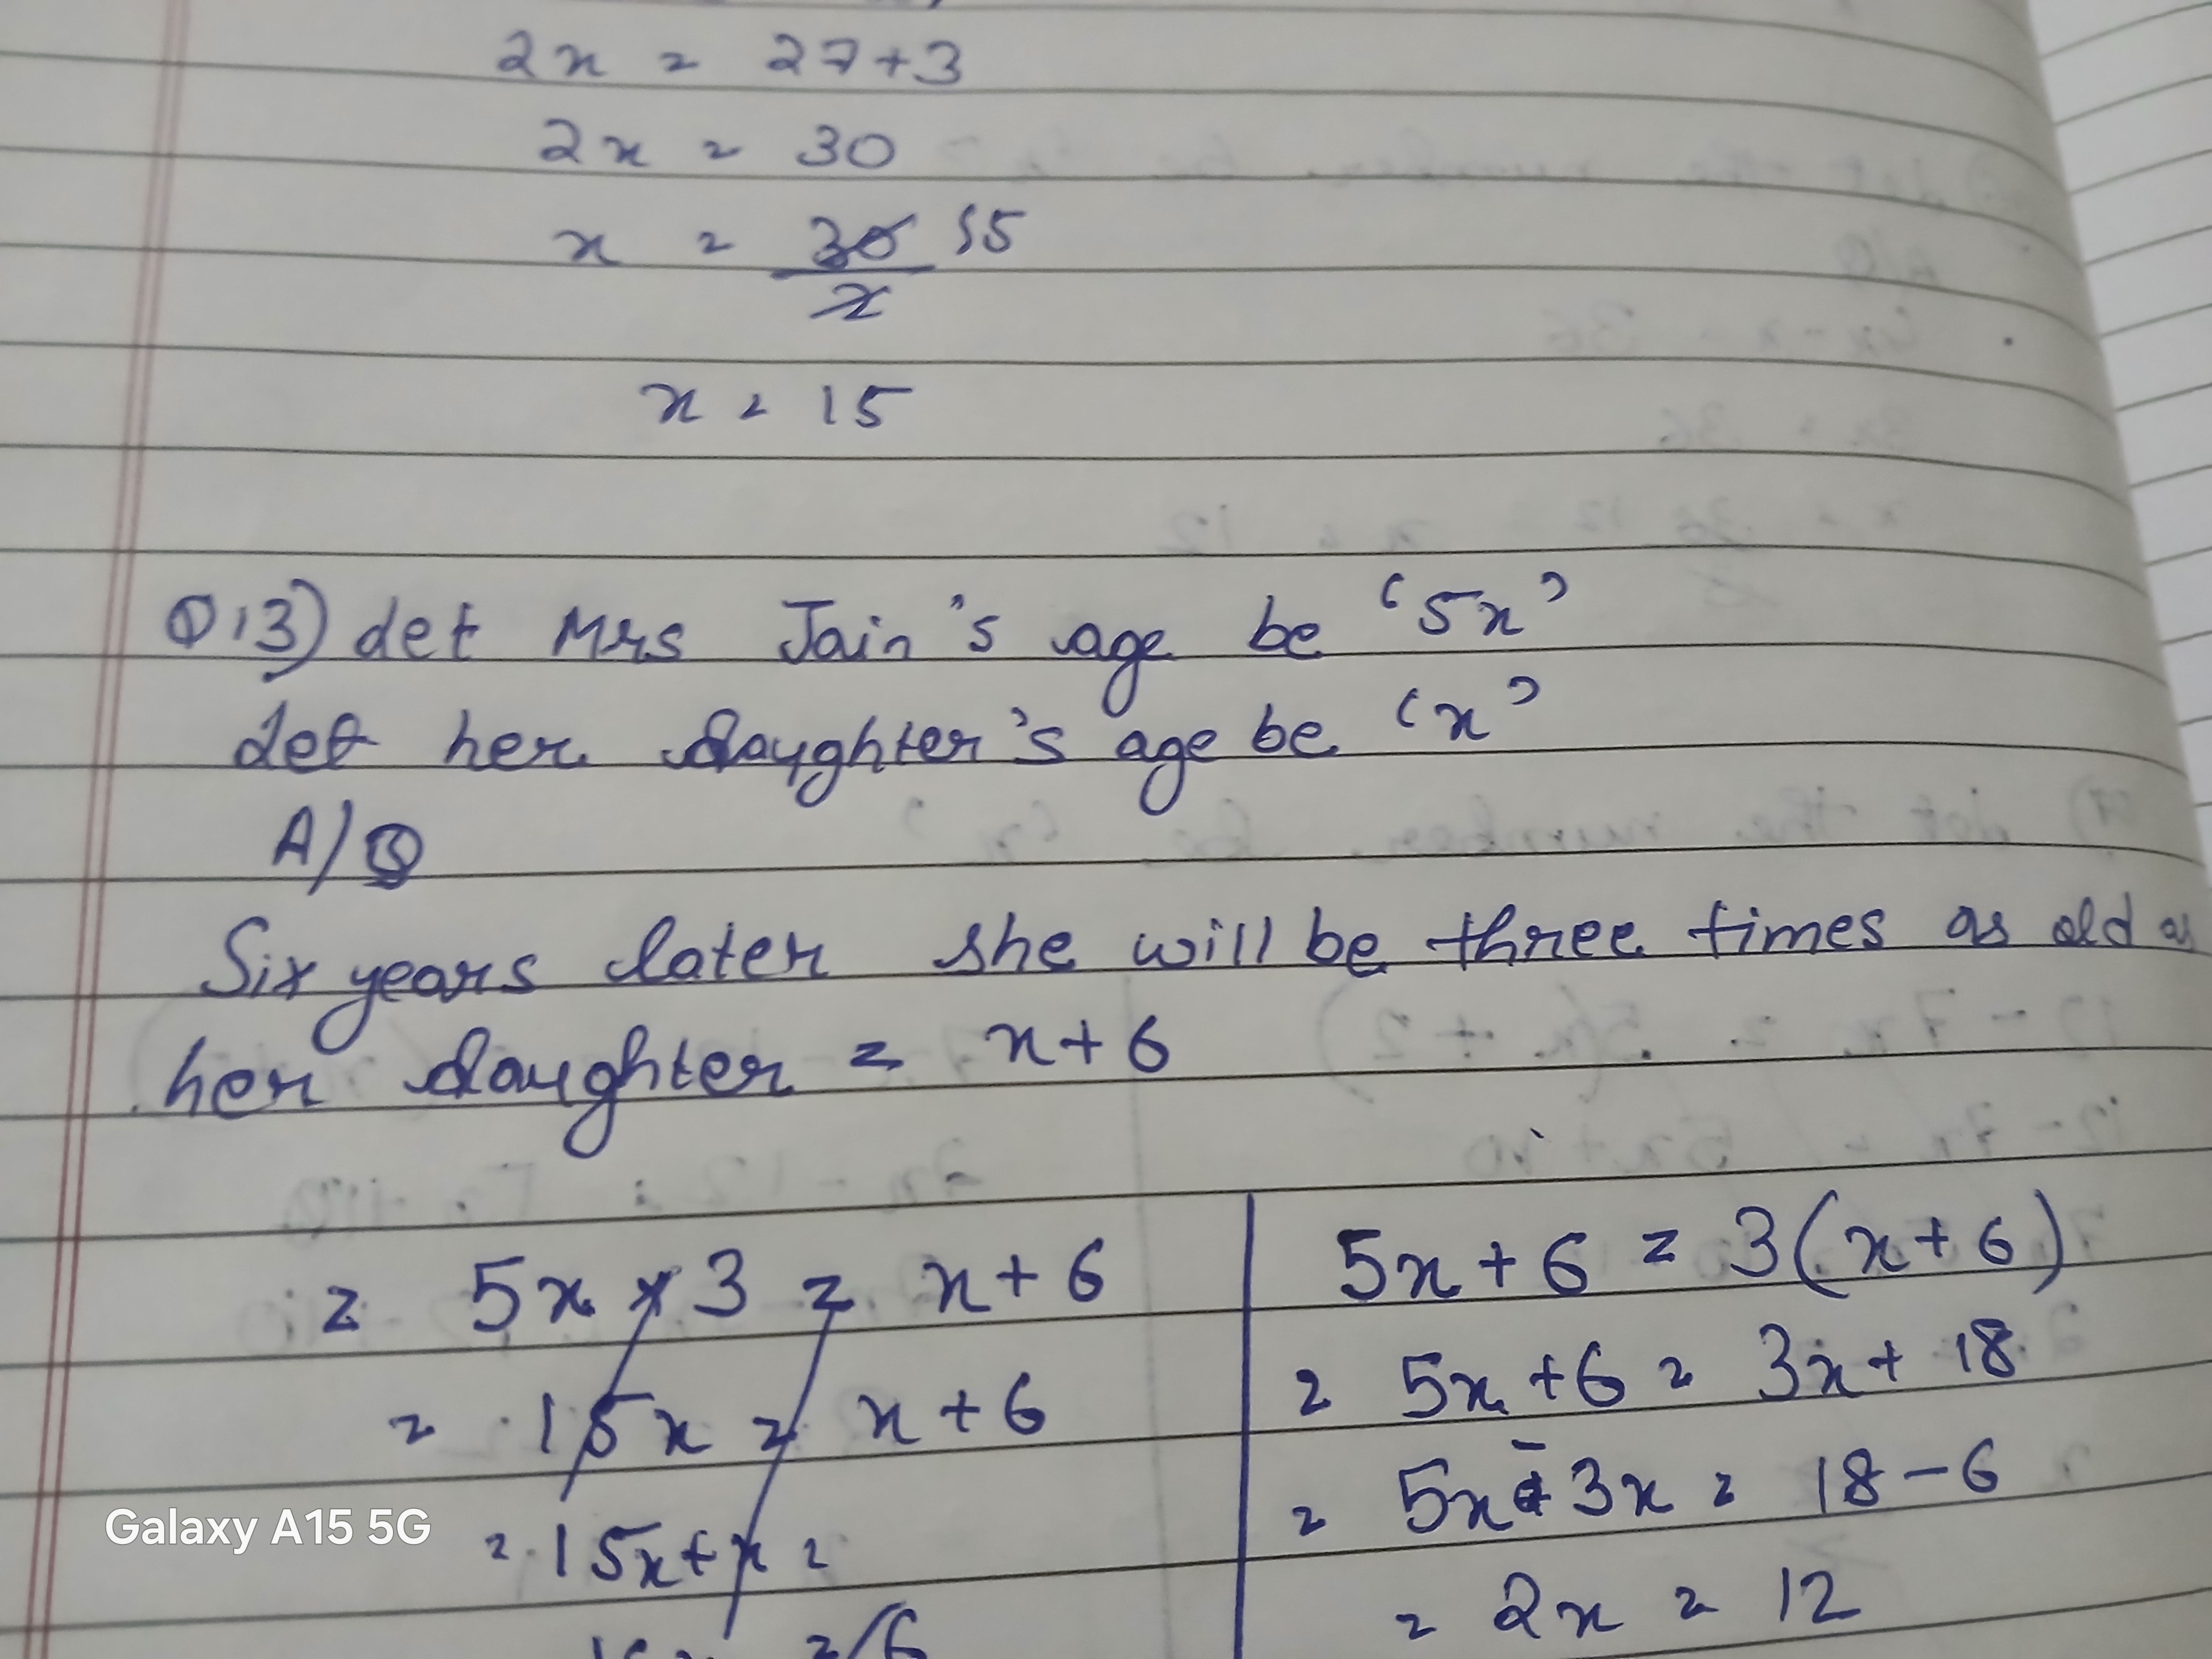 2x = 27+3
2x = 30
x = 30/2 15
x = 15
Q13) Let Mrs Jain's age be '5x'
Let her daughter's age be 'x'
A/Q
Six years later she will be three times as old as
her daughter = x+6
= 5x × 3 = x+6
= 15x = x+6
= 15x+x =
5x+6 = 3(x+6)
= 5x+6 = 3x+18
= 5x-3x = 18-6
= 2x = 12
Galaxy A15 5G